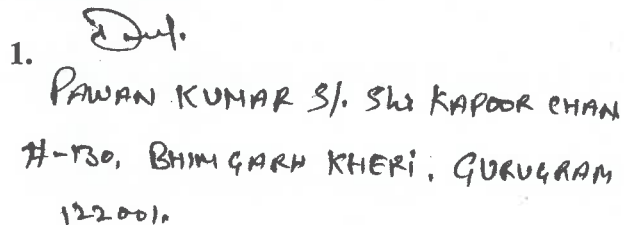 1.
PAWAN KUMAR S/. Shi KAPOOR CHAN
#-130, BHIMGARH KHERI, GURUGRAM
122001.